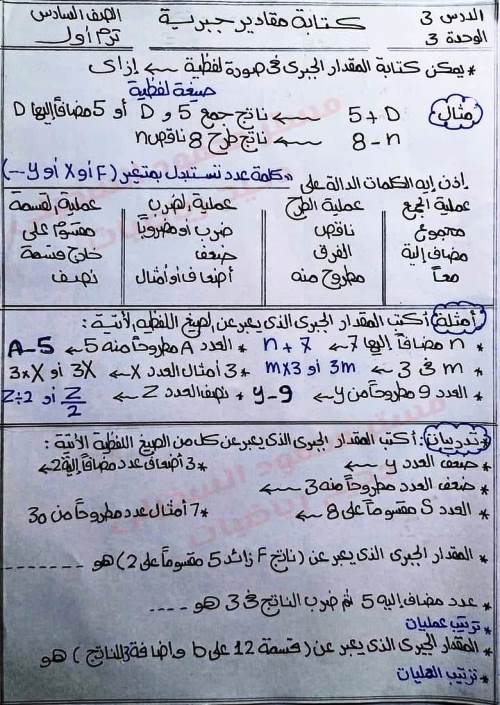 الدرس 3 كتابة مقادير جبرية الصف السادس
الوحدة 3 ترم أول
* يمكن كتابة المقدار الجبرى فى صورة لفظية ← إزاى
صيغة لفظية
مثال 5 + D ← ناتج جمع 5 و D أو 5 مضافاً إليها D
8 - n ← ناتج طرح 8 ناقص n
إذن إيه الكلمات الدالة على * كلمة عدد تستبدل بمتغير (F أو X أو y --)
عملية الجمع عملية الطرح عملية الضرب عملية القسمة
مجموع ناقص ضرب أو مضروباً مقسوم على
مضاف إلية الفرق ضعف خارج قسمة
معاً مطروح منه أضعاف أو أمثال نصف
أمثلة أكتب المقدار الجبرى الذى يعبر عن الصيغ اللفظية الأتية :
* n مضافاً إليها 7 ← n + 7 * العدد A مطروحاً منه 5 ← A - 5
* m فى 3 ← 3m أو m×3 * 3 أمثال العدد X ← 3X أو 3×X
* العدد 9 مطروحاً من y ← y - 9 * نصف العدد Z ← Z/2 أو Z÷2
تدريبات : أكتب المقدار الجبرى الذى يعبر عن كل من الصيغ اللفظية الأتية :
* ضعف العدد y ← * 3 أضعاف عدد مضافاً إلية 2 ←
* ضعف العدد مطروحاً منه 3 ←
* العدد S مقسوماً على 8 ← * 7 أمثال عدد مطروحاً من 30
* المقدار الجبرى الذى يعبر عن (ناتج F زائد 5 مقسوماً على 2) هو -------
* عدد مضاف إليه 5 ثم ضرب الناتج فى 3 هو ----
* ترتيب عمليات
* المقدار الجبرى الذى يعبر عن ( قسمة 12 على b وإضافة 3 للناتج ) هو
* ترتيب العمليات